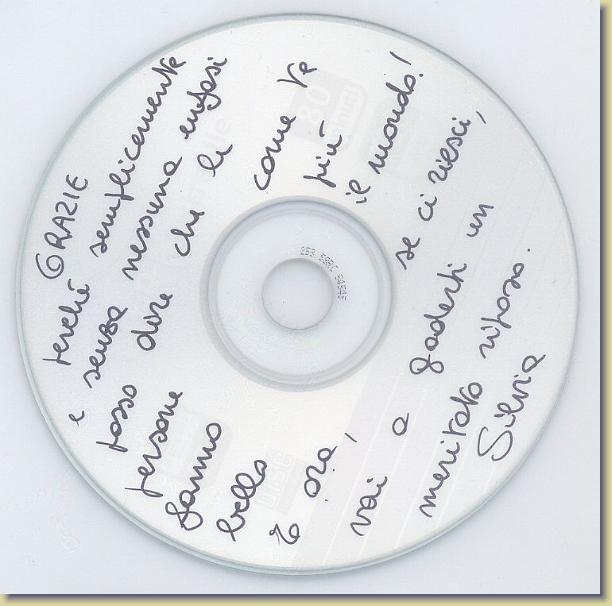 GRAZIE
perché semplicemente
e senza nessuna enfasi
posso dire che le
persone come te
fanno più
bello il mondo!
E ora, se ci riesci,
vai a goderti un
meritato riposo.
Silvia